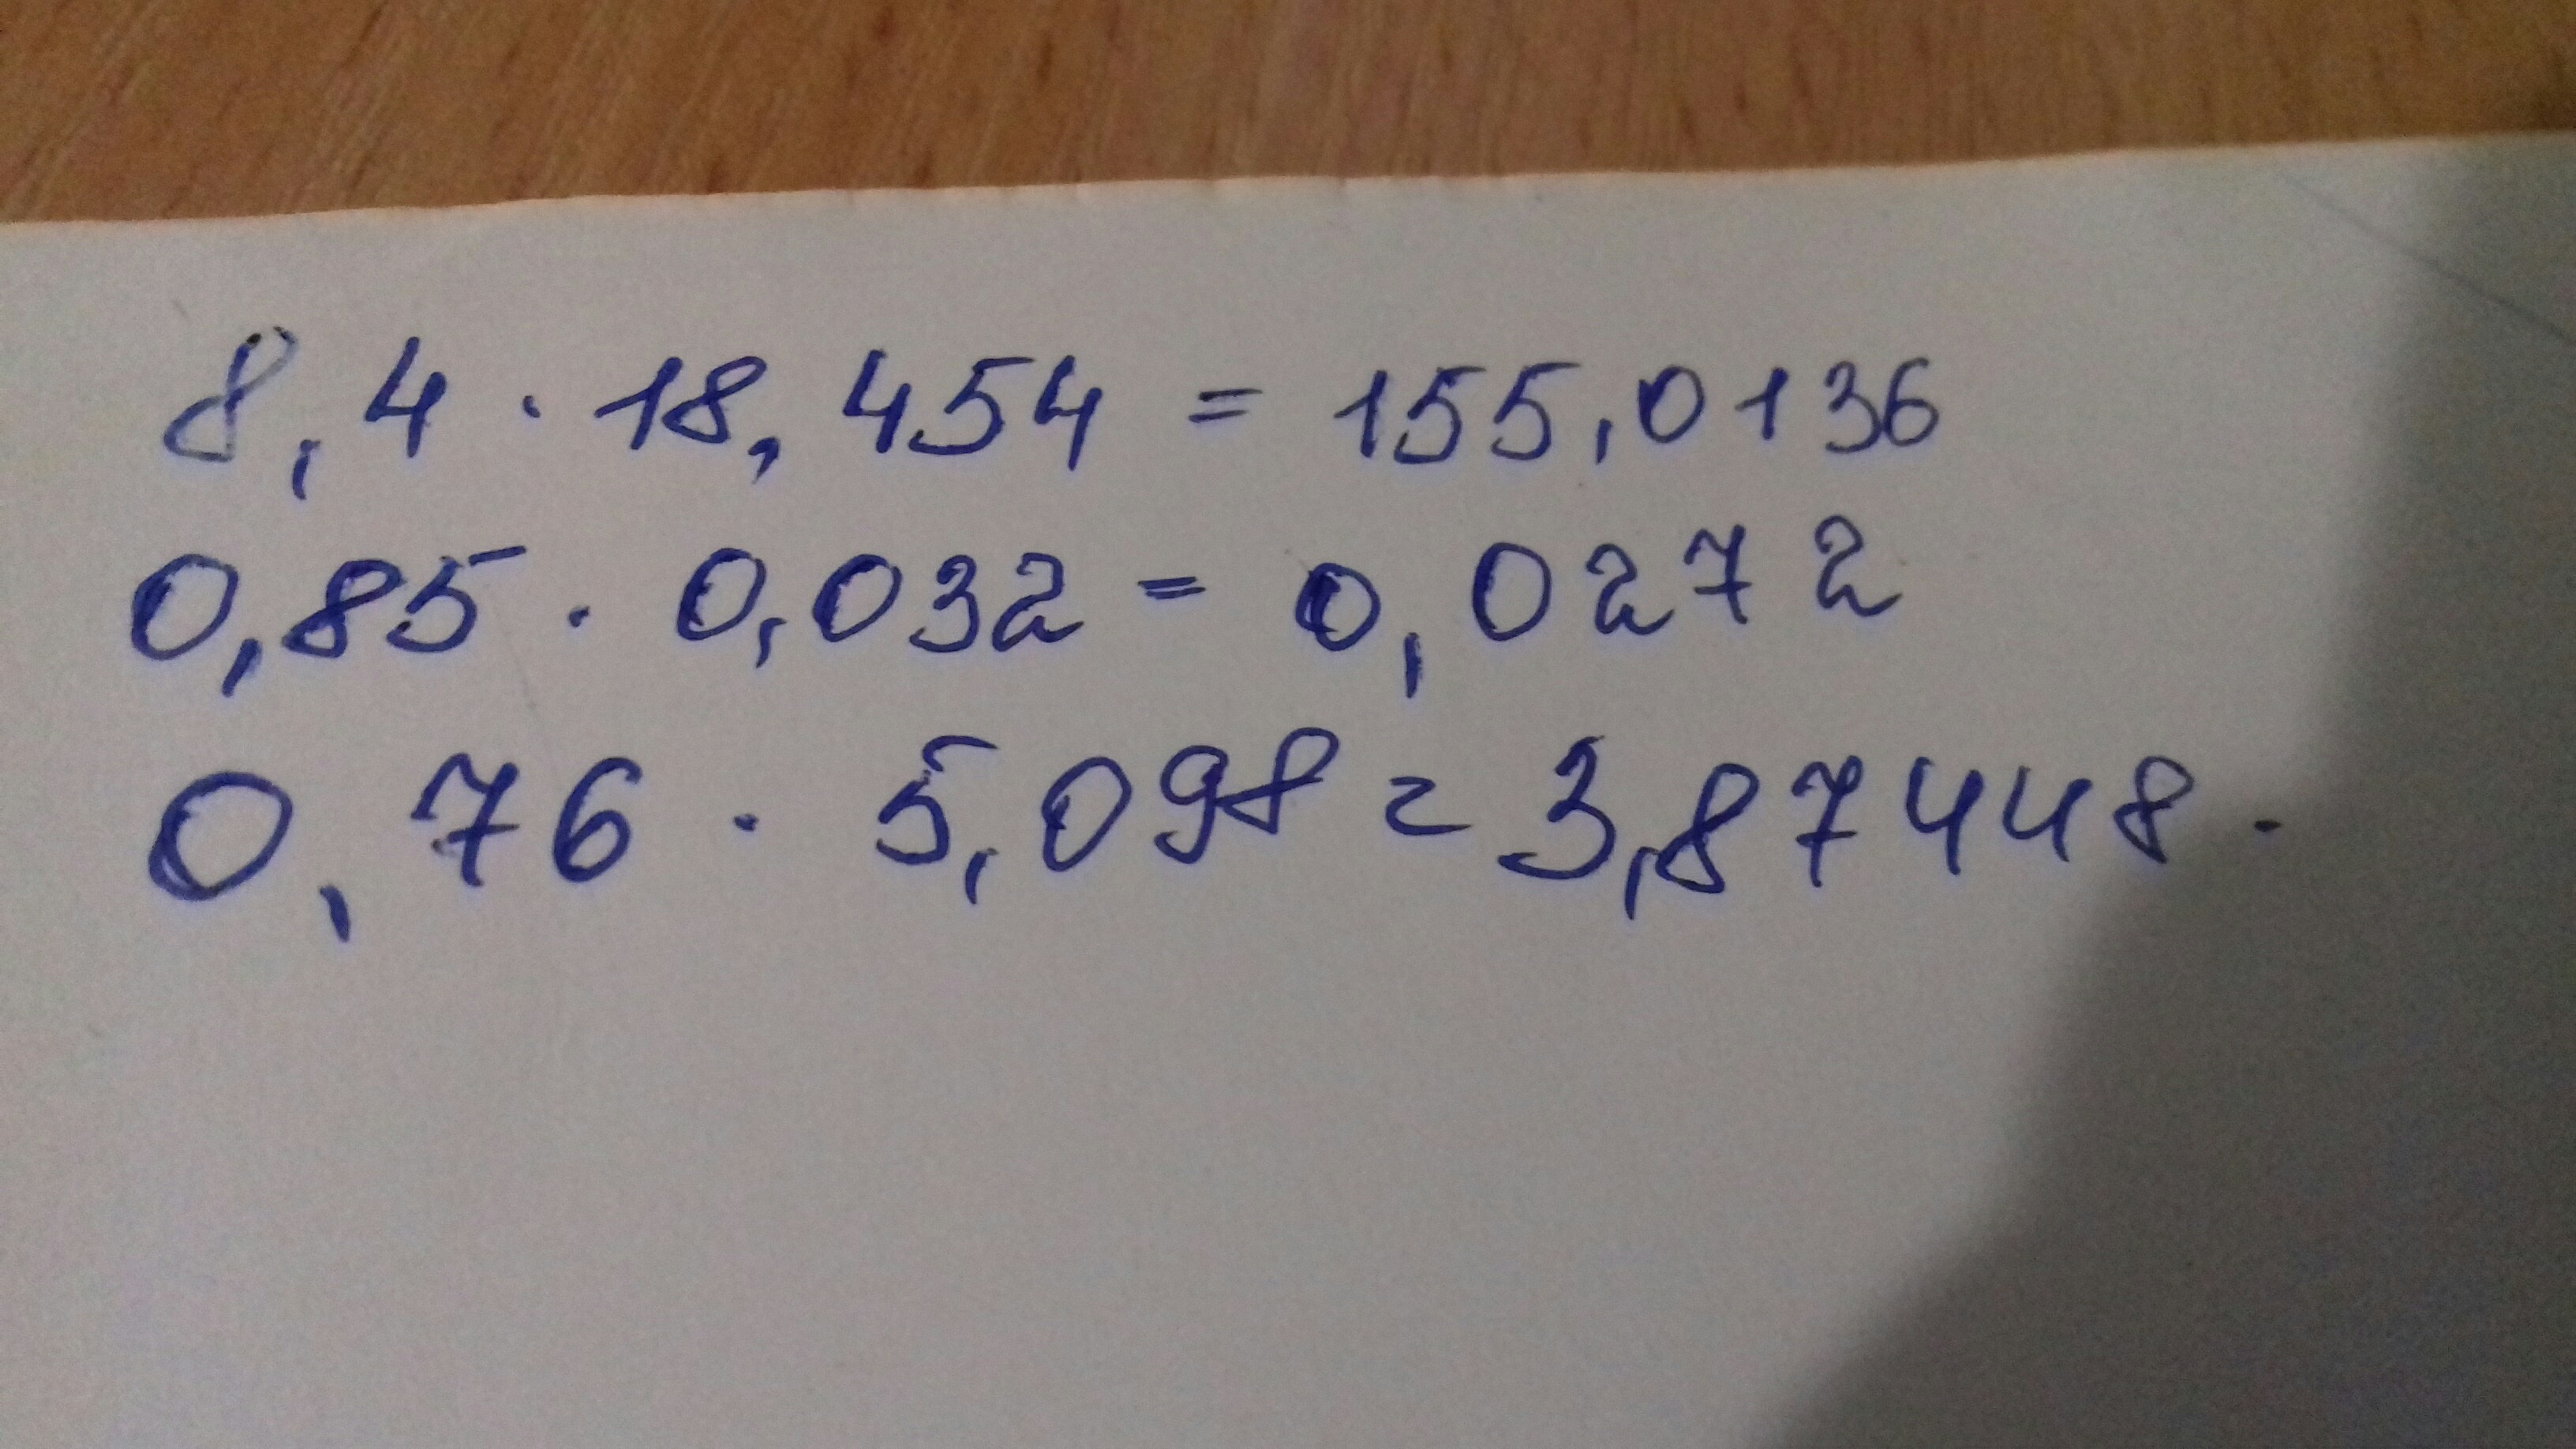 8,4 · 18,454 = 155,0136
0,85 · 0,032 = 0,0272
0,76 · 5,098 = 3,87448.